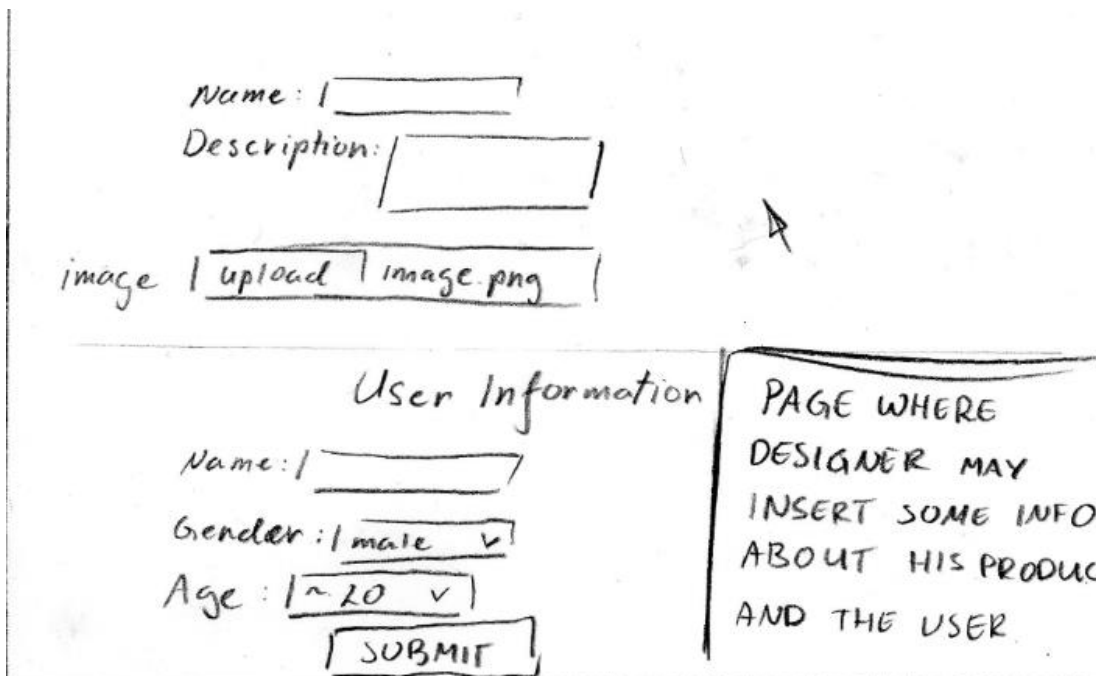 Name:
Description:
image upload image.png
User Information
Name:
Gender: male
Age: ~20
SUBMIT
PAGE WHERE
DESIGNER MAY
INSERT SOME INFO
ABOUT HIS PRODUC
AND THE USER